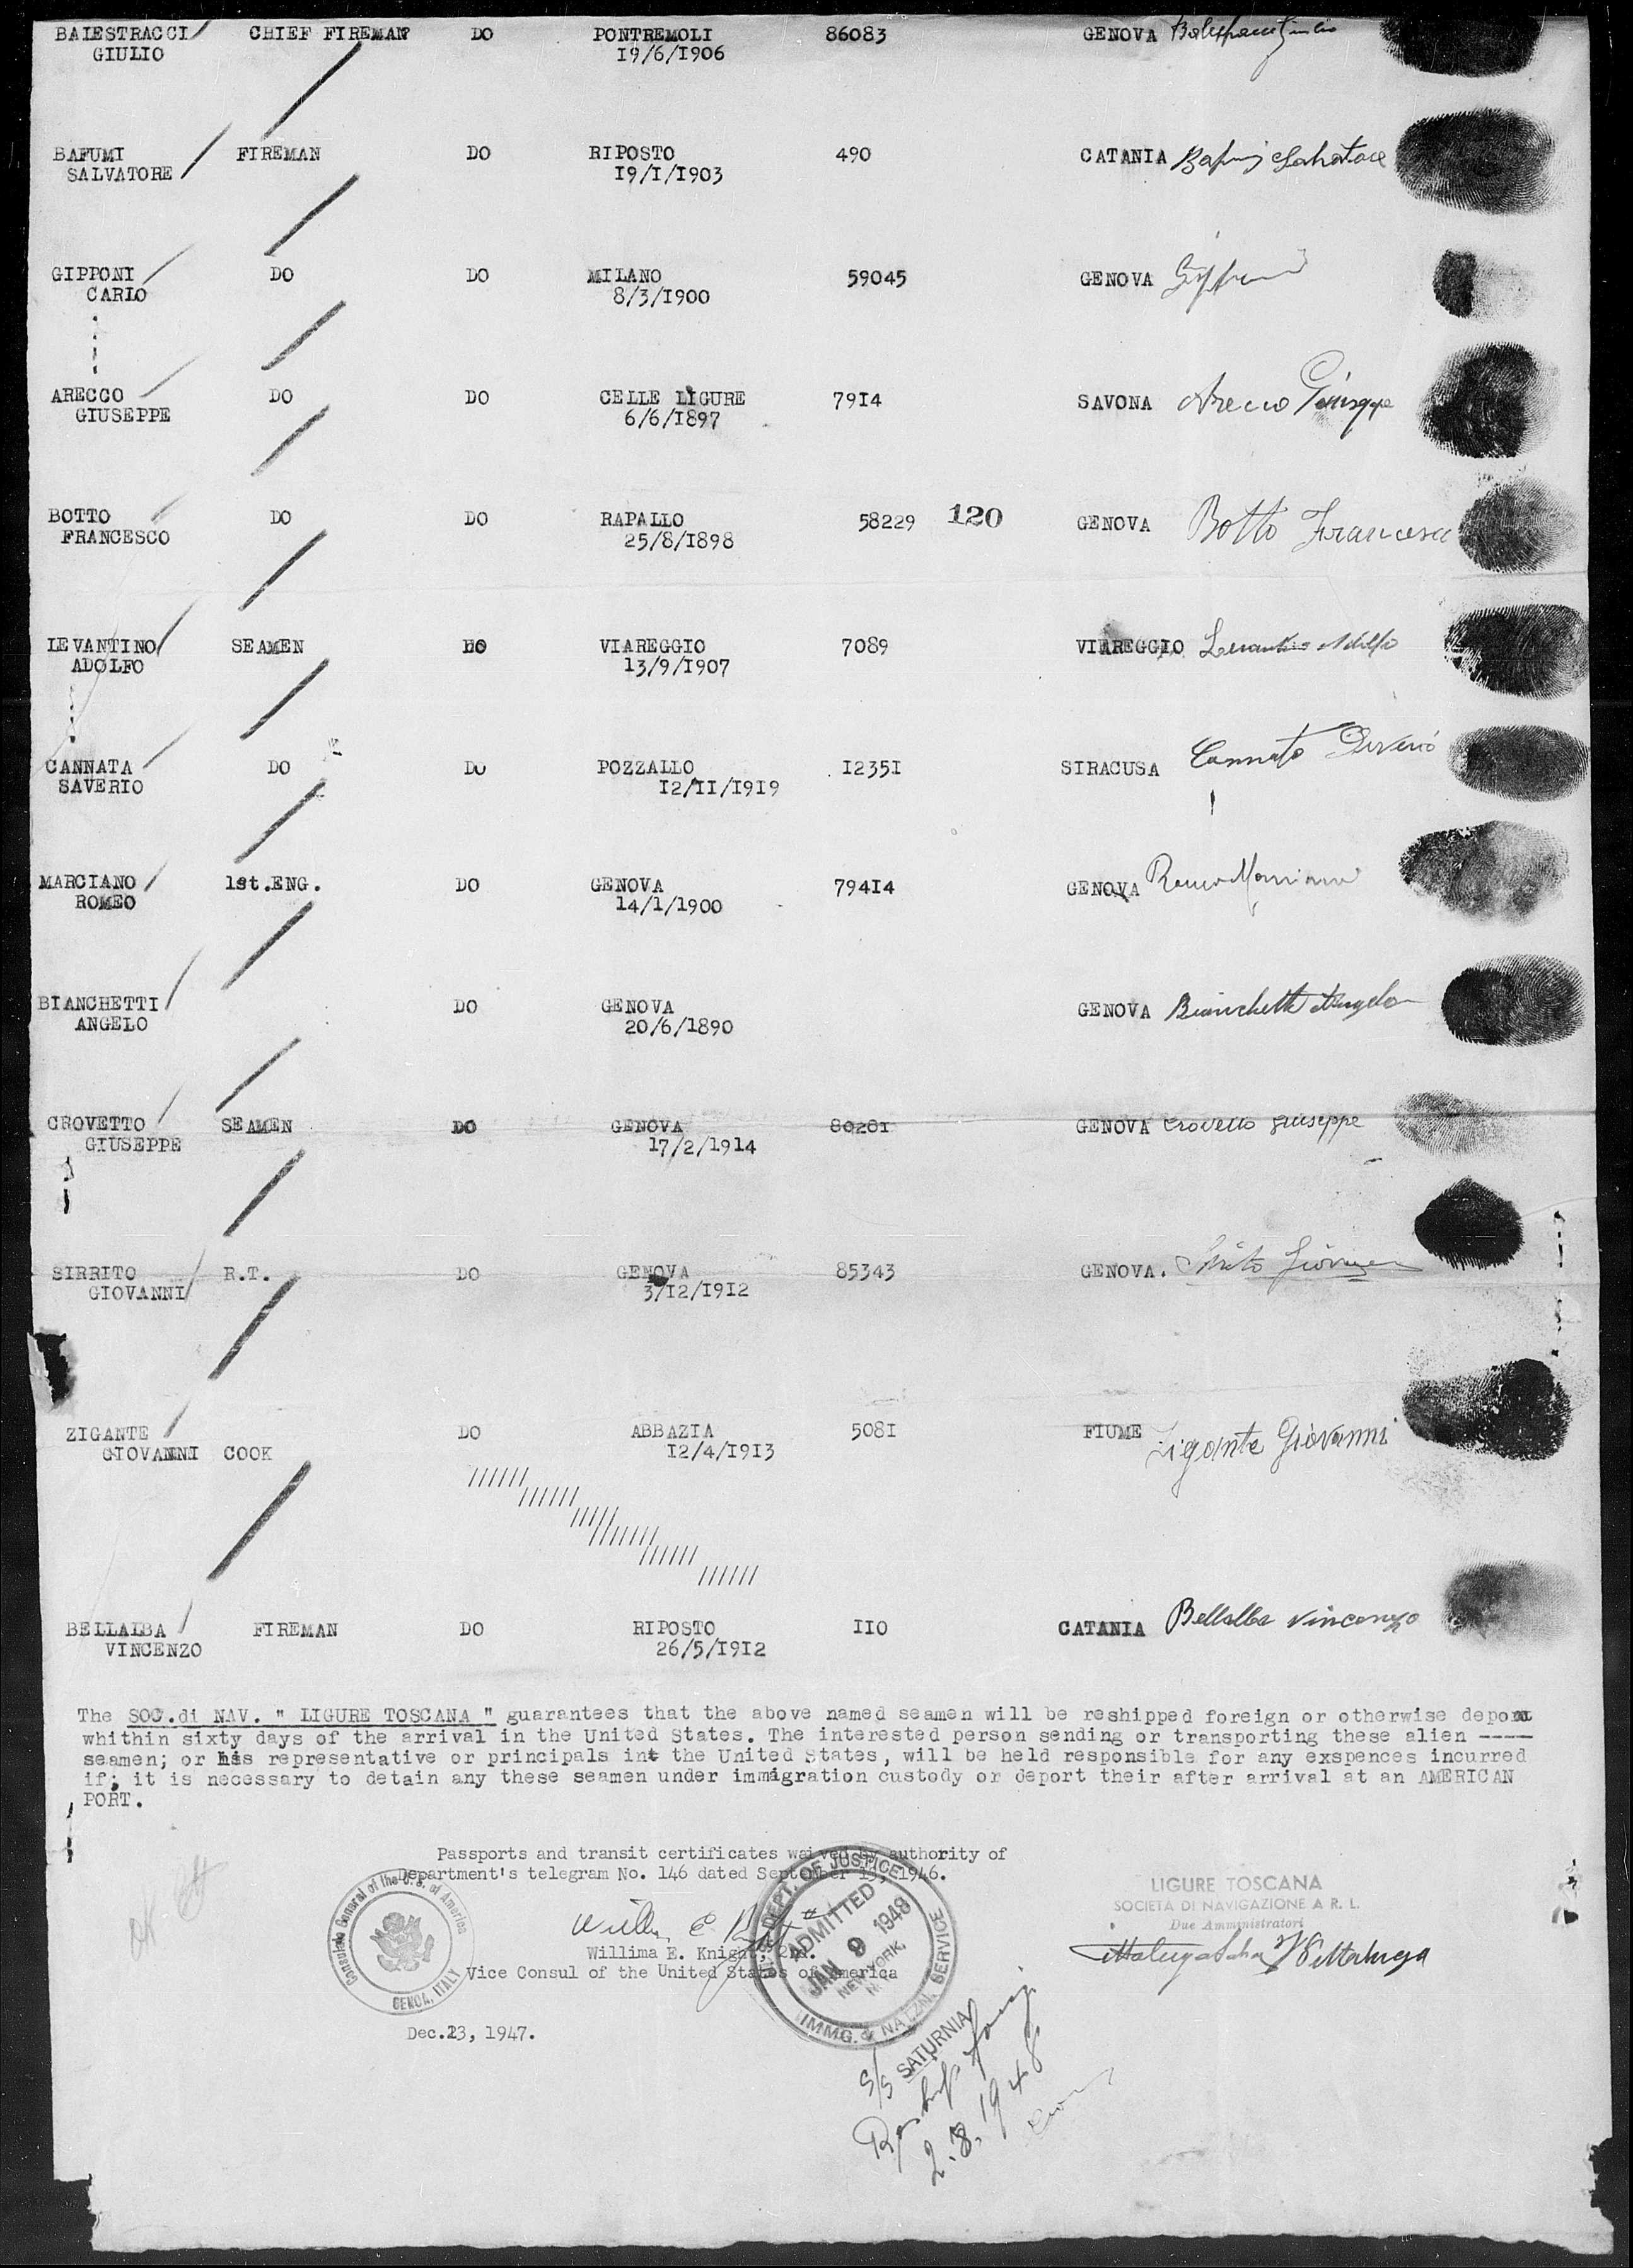 BALESTRACCI CHIEF FIREMAN DO PONTREMOLI 86083 GENOVA
GIULIO 19/6/1906
BAFUMI FIREMAN DO RIPOSTO 490 CATANIA Bafumi Salvatore
SALVATORE 19/1/1903
GIPPONI DO DO MILANO 59045 GENOVA Gipponi
CARLO 8/3/1900
ARECCO DO DO CELLE LIGURE 7914 SAVONA Arecco Giuseppe
GIUSEPPE 6/6/1897
BOTTO DO DO RAPALLO 58229 120 GENOVA Botto Francesco
FRANCESCO 25/8/1898
LEVANTINO SEAMEN DO VIAREGGIO 7089 VIAREGGIO Levantino Adolfo
ADOLFO 13/9/1907
CANNATA DO DO POZZALLO 12351 SIRACUSA Cannata Saverio
SAVERIO 12/11/1919
MARCIANO 1st.ENG. DO GENOVA 79414 GENOVA Romeo Marciano
ROMEO 14/1/1900
BIANCHETTI DO GENOVA GENOVA Bianchetti Angelo
ANGELO 20/6/1890
CROVETTO SEAMEN DO GENOVA 80281 GENOVA Crovetto Giuseppe
GIUSEPPE 17/2/1914
SIRRITO R.T. DO GENOVA 85343 GENOVA. Sirrito Giovanni
GIOVANNI 3/12/1912
ZIGANTE DO ABBAZIA 5081 FIUME Zigante Giovanni
GIOVANNI COOK 12/4/1913
BELLALBA FIREMAN DO RIPOSTO 110 CATANIA Bellalba Vincenzo
VINCENZO 26/5/1912
The SOC.di NAV. " LIGURE TOSCANA " guarantees that the above named seamen will be reshipped foreign or otherwise
whithin sixty days of the arrival in the United States. The interested person sending or transporting these alien ----
seamen; or his representative or principals int the United States, will be held responsible for any exspences incurred
if; it is necessary to detain any these seamen under immigration custody or deport their after arrival at an AMERICAN
PORT.
Passports and transit certificates waived by authority of
Department's telegram No. 146 dated September 19, 1946.
Willima E. Knight, 2nd.
Vice Consul of the United States of America
Consulate General of the U.S. of America
GENOA, ITALY
Dec.23, 1947.
U.S. DEPT. OF JUSTICE
ADMITTED
JAN 9 1948
NEW YORK, N.Y.
IMMG. & NATZN. SERVICE
LIGURE TOSCANA
SOCIETA DI NAVIGAZIONE A R. L.
Due Amministratori
OK
S/S SATURNIA
2.8.1948